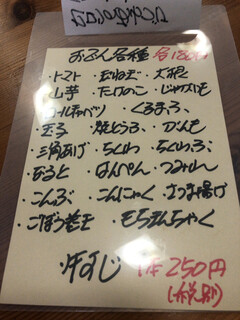 おでん各種 各180円
・トマト ・玉ねぎ ・大根
・山芋 ・たけのこ ・じゃがいも
・ロールキャベツ ・くるまふ
・玉子 ・焼とうふ ・がんも
・三角あげ ・ちくわ ・ちくわぶ
・なると ・はんぺん ・つみれ
・こんぶ ・こんにゃく ・さつま揚げ
・ごぼう巻 ・もちきんちゃく
・牛すじ 1本 250円
(税別)